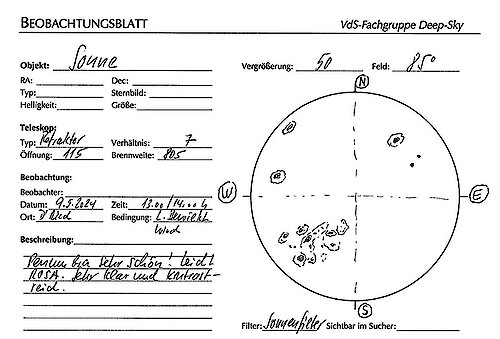 BEOBACHTUNGSBLATT VdS-Fachgruppe Deep-Sky
Objekt: Sonne Vergrößerung: 50 Feld: 85°
RA: Dec:
Typ: Sternbild:
Helligkeit: Größe:
N
Teleskop:
Typ: Refraktor Verhältnis: 7
Öffnung: 115 Brennweite: 805
Beobachtung:
Beobachter:
W E
Datum: 9.5.2024 Zeit: 13.00/14.00 h
Ort: Bedingung: L.
Wind
Beschreibung:
Penumbra sehr schön! leicht
ROSA. Sehr klar und kontrast-
reich.
S
Filter: Sonnenfilter Sichtbar im Sucher: